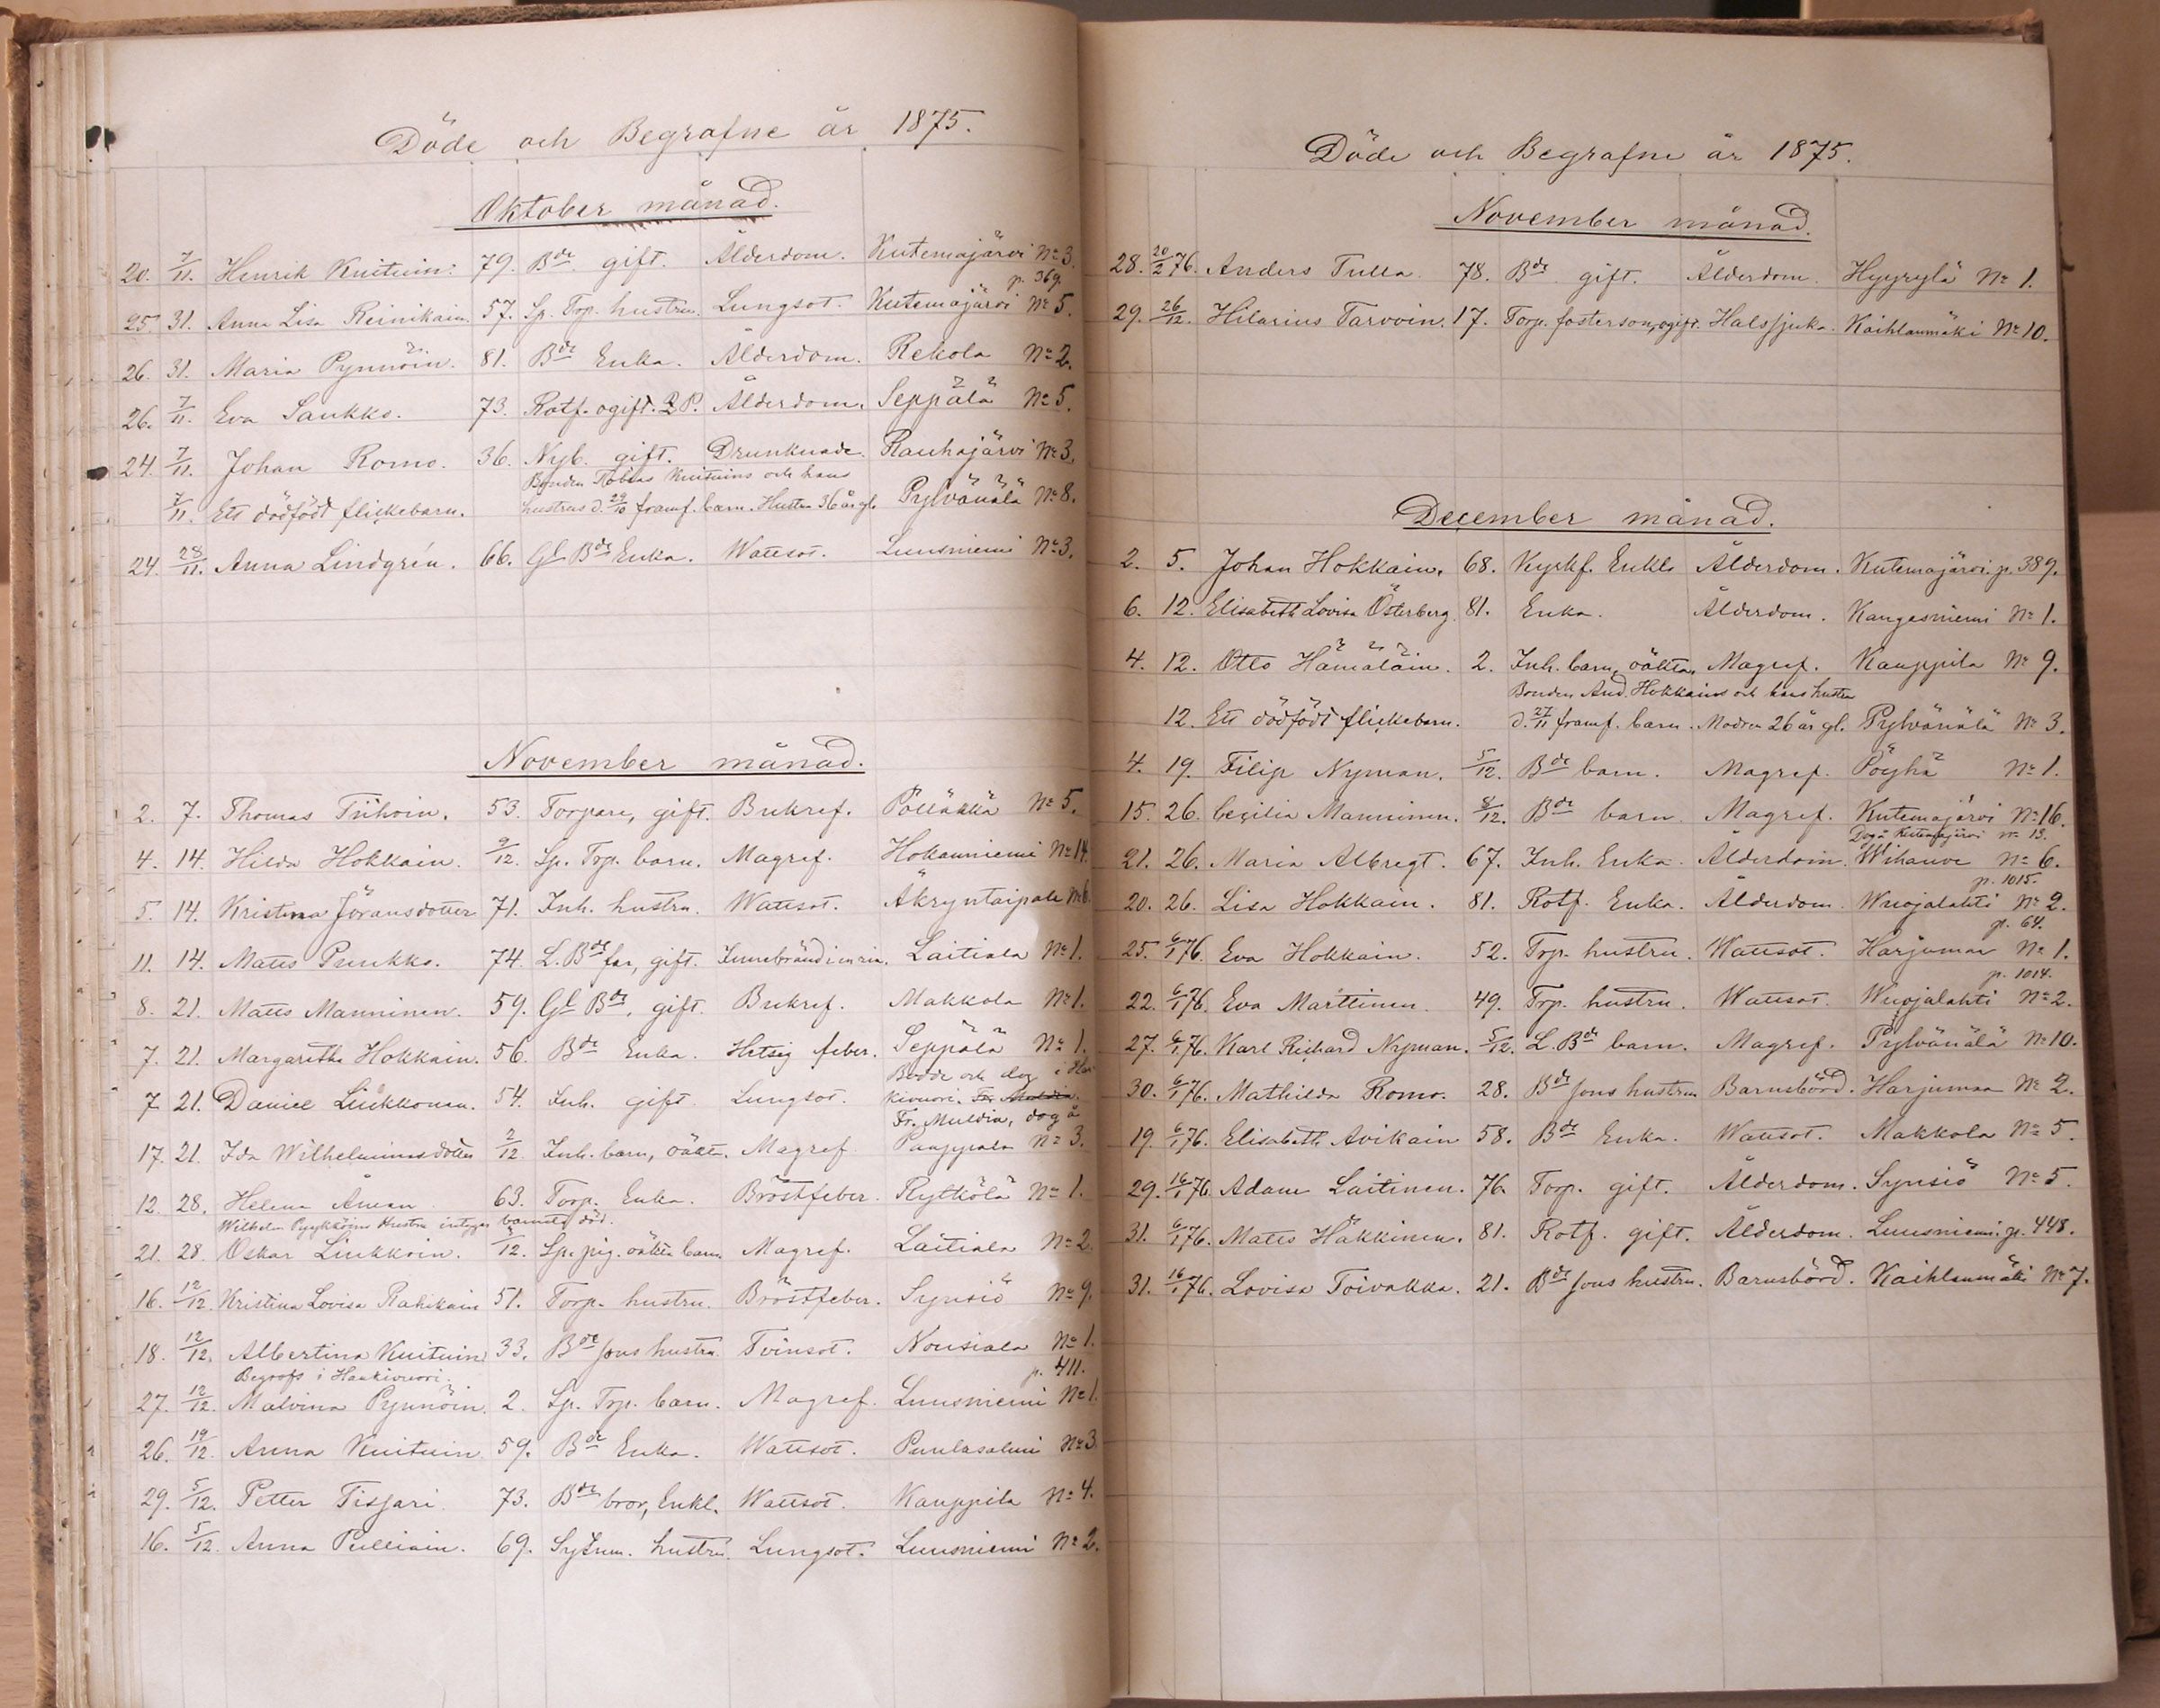 Döde och Begrafne år 1875.
Oktober månad.
20. 7/11. Henrik Kuituin. 79. Bde gift. Ålderdom. Kutemajärvi No 3.
p. 369.
25. 31. Anna Lisa Reinikain. 57. Sp. Trp. hustru. Lungsot. Kutemajärvi No 5.
26. 31. Maria Pynnöin. 81. Bde Enka. Ålderdom. Rekola No 2.
26. 7/11. Eva Laukko. 73. Rotf. ogift. Ålderdom. Seppälä No 5.
24. 7/11. Johan Romo. 36. Nyb. gift. Drunknade. Rauhajärvi No 3.
Bonden Tobias Kuituins och hans
7/11. Ett dödfödt flickebarn. hustrus d. 29/10 framf. barn. Hustrun 36 år gl. Pylvänälä No 8.
24. 28/11. Anna Lindgrén. 66. Gl Bde Enka. Wattsot. Luusniemi No 3.
November månad.
2. 7. Thomas Tiihoin. 53. Torpare, gift. Bukref. Pölläkkä No 5.
4. 14. Hilda Hokkain. 9/12. Sp. Trp. barn. Magref. Hokanniemi No 14.
5. 14. Kristina Jöransdotter 71. Inh. hustru. Wattsot. Äkryntaipale No 6.
11. 14. Matts Puukko. 74. L. Bde far, gift. Laitiala No 1.
8. 21. Matts Manninen. 59. Gl Bde, gift. Bukref. Makkola No 1.
7. 21. Margaretha Hokkain. 56. Bde Enka. Hetsig feber. Seppälä No 1.
Bodde och dog i Hau
7. 21. Daniel Liukkonen. 54. Inh. gift. Lungsot. kivuori. Fr. Muldia.
Fr. Muldia, dog å
17. 21. Ida Wilhelminasdotter 2/12. Inh. barn, oäkt. Magref. Pauppala No 3.
12. 28. Helena Änean 63. Torp. Enka. Bröstfeber. Rytkölä No 1.
Wilhelm Pyykköins hustru intygar barnets död.
21. 28. Oskar Liukkoin. /12. Sp. pig. oäkta barn Magref. Laitiala No 2.
16. 12/12. Kristina Lovisa Rahikain 51. Torp. hustru. Bröstfeber. Synsiö No 9.
18. 12/12. Albertina Kuituin 33. Bde sons hustru. Tvinsot. Nousiala No 1.
Begrofs i Haukivuori. p. 411.
27. 12/12. Malvina Pynnöin. 2. Sp. Trp. barn. Magref. Luusniemi No 1.
26. 19/12. Anna Kuituin 59. Bde Enka. Wattsot. Puulasalmi No 3.
29. 5/12. Petter Tissari. 73. Bde bror, Enkl. Wattsot. Kauppila No 4.
16. 5/12. Anna Pulliain. 69. hustru. Lungsot. Luusniemi No 2.
Döde och Begrafne år 1875.
November månad.
28. 20/2 76. Anders Tulla. 78. Bde gift. Ålderdom. Hyyrylä No 1.
29. 26/12. Hilarius Tarvoin. 17. Torp. fosterson, ogift. Halssjuka. Kaihlanmäki No 10.
December månad.
2. 5. Johan Hokkain. 68. Kyrkf. Enkl. Ålderdom. Kutemajärvi. p. 389.
6. 12. Elisabeth Lovisa Österberg. 81. Enka. Ålderdom. Kangasniemi No 1.
4. 12. Otto Hämäläin. 2. Inh. barn, oäkta. Magref. Kauppila No 9.
Bonden And. Hokkains och hans hustru
12. Ett dödfödt flickebarn. d. 27/11 framf. barn. Modren 26 år gl. Pylvänälä No 3.
4. 19. Filip Nyman. 5/12. Bde barn. Magref. Pöyhä No 1.
15. 26. Cecilia Manninen. 8/12. Bde barn. Magref. Kutemajärvi No 16.
Dog å Kutemajärvi no 13.
21. 26. Maria Albregt. 67. Inh. Enka. Ålderdom. Wihanne No 6.
p. 1015.
20. 26. Lisa Hokkain. 81. Rotf. Enka. Ålderdom. Wuojalahti No 2.
p. 64.
25. 6/1 76. Eva Hokkain. 52. Trp. hustru. Wattsot. Harjumaa No 1.
p. 1014.
22. 6/1 76. Eva Marttinen. 49. Trp. hustru. Wattsot. Wuojalahti No 2.
27. 6/1 76. Karl Richard Nyman. 5/12. L. Bde barn. Magref. Pylvänälä No 10.
30. 6/1 76. Mathilda Romo. 28. Bde sons hustru Barnsbörd. Harjumaa No 2.
19. 6/1 76. Elisabeth Avikain 58. Bde Enka. Wattsot. Makkola No 5.
29. 16/1 76. Adam Laitinen. 76. Torp. gift. Ålderdom. Synsiö No 5.
31. 6/1 76. Matts Häkkinen. 81. Rotf. gift. Ålderdom. Luusniemi. p. 448.
31. 16/1 76. Lovisa Toivakka. 21. Bde sons hustru. Barnsbörd. Kaihlanmäki No 7.